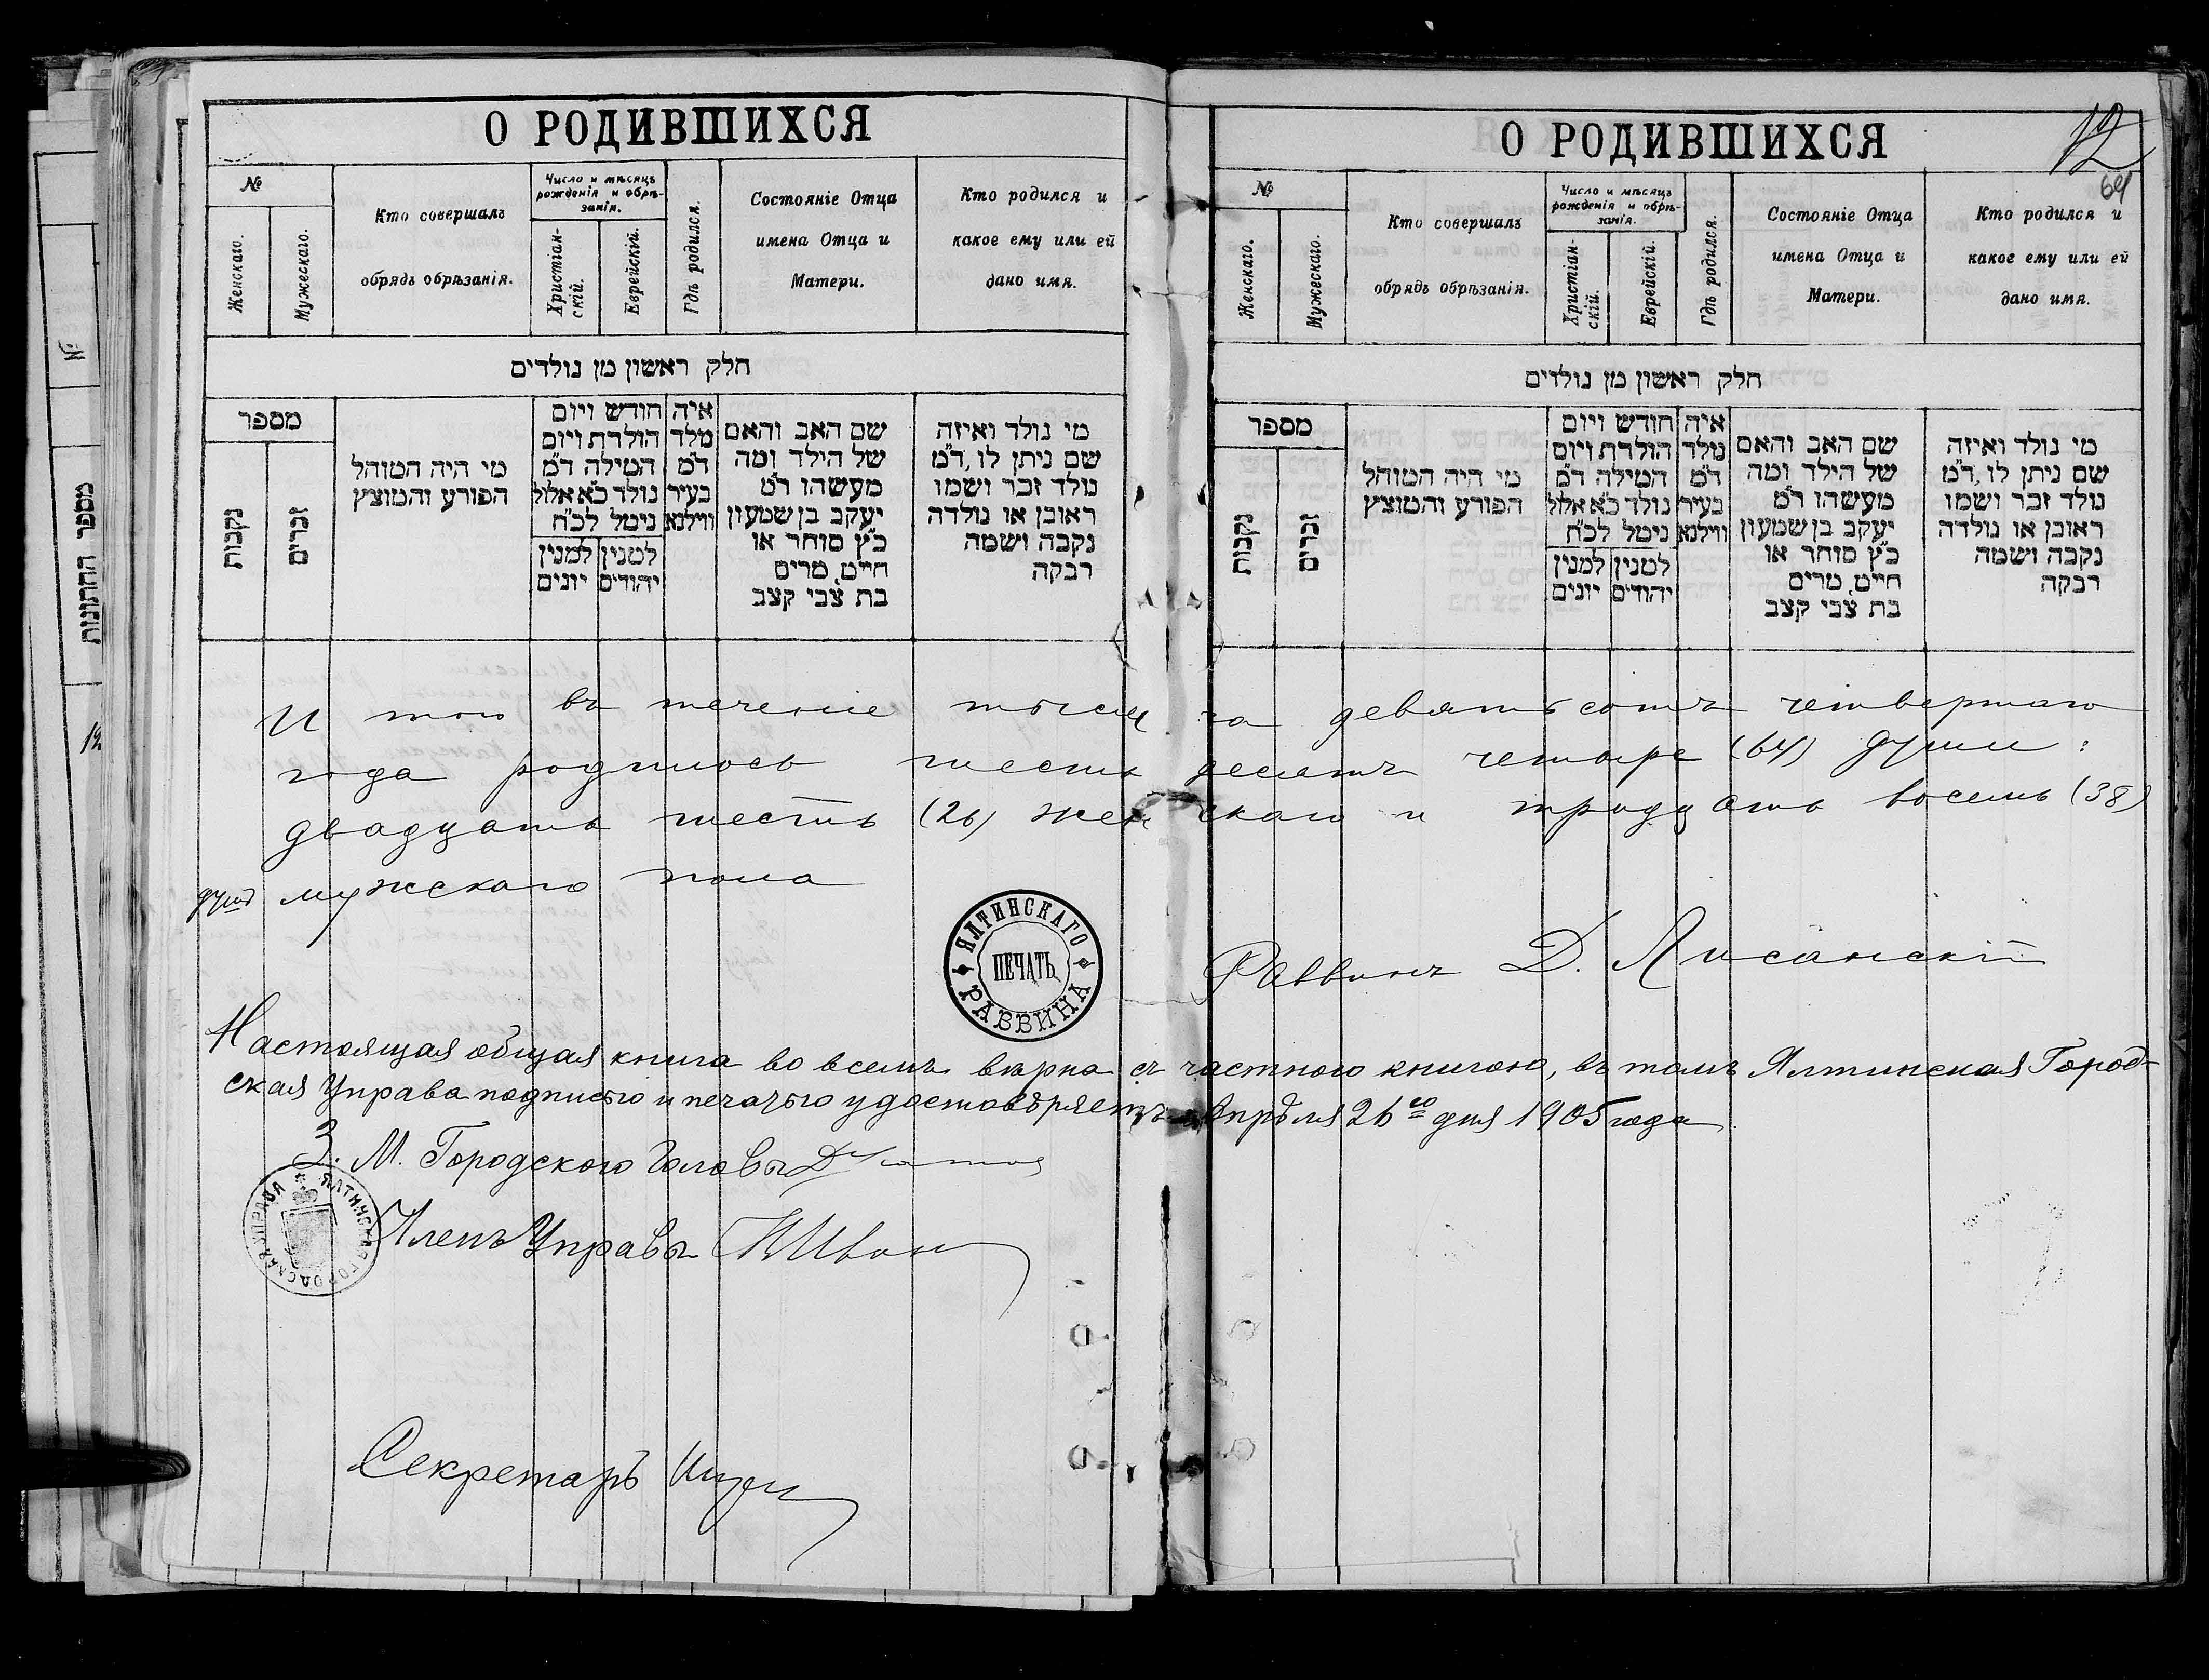 О РОДИВШИХСЯ
№
Женскаго.
Мужескаго.
Кто совершалъ
обрядъ обрѣзанія.
Число и мѣсяцъ
рожденія и обрѣ-
занія.
Христіан-
скій.
Еврейскій.
Гдѣ родился.
Состояніе Отца
имена Отца и
Матери.
Кто родился и
какое ему или ей
дано имя.
חלק ראשון מן נולדים
מספר
נקבות
זכרים
מי היה המוהל
הפורע והמוצץ
חודש ויום
הולדת ויום
המילה ד"מ
נולד כ"א אלול
ניטל לכ"ח
למנין
יהודים
למנין
יונים
איה
נולד
ד"מ
בעיר
ווילנא
שם האב והאם
של הילד ומה
מעשהו ד"מ
יעקב בן שמעון
כ"ץ סוחר או
חייט, מרים
בת צבי קצב
מי נולד ואיזה
שם ניתן לו, ד"מ
נולד זכר ושמו
ראובן או נולדה
נקבה ושמה
רבקה
О РОДИВШИХСЯ
12
64
№
Женскаго.
Мужескаго.
Кто совершалъ
обрядъ обрѣзанія.
Число и мѣсяцъ
рожденія и обрѣ-
занія.
Христіан-
скій.
Еврейскій.
Гдѣ родился.
Состояніе Отца
имена Отца и
Матери.
Кто родился и
какое ему или ей
дано имя.
חלק ראשון מן נולדים
מספר
נקבות
זכרים
מי היה המוהל
הפורע והמוצץ
חודש ויום
הולדת ויום
המילה ד"מ
נולד כ"א אלול
ניטל לכ"ח
למנין
יהודים
למנין
יונים
איה
נולד
ד"מ
בעיר
ווילנא
שם האב והאם
של הילד ומה
מעשהו ד"מ
יעקב בן שמעון
כ"ץ סוחר או
חייט, מרים
בת צבי קצב
מי נולד ואיזה
שם ניתן לו, ד"מ
נולד זכר ושמו
ראובן או נולדה
נקבה ושמה
רבקה
И того въ теченіе тысяча девятьсотъ четвертаго
года родилось шестьдесятъ четыре (64) души:
двадцать шесть (26) женскаго и тридцать восемь (38)
душъ мужскаго пола
ЯЛТИНСКАГО РАВВИНА
ПЕЧАТЬ
Раввинъ Д. Лисанскій
Настоящая общая книга во всемъ вѣрна съ частною книгою, въ томъ Ялтинская Город-
ская Управа подписью и печатью удостовѣряетъ Апрѣля 26го дня 1905 года
З. М. Городского Головы
ЯЛТИНСКАЯ ГОРОДСКАЯ УПРАВА
Членъ Управы
Секретарь
מספר החתונות
№
12